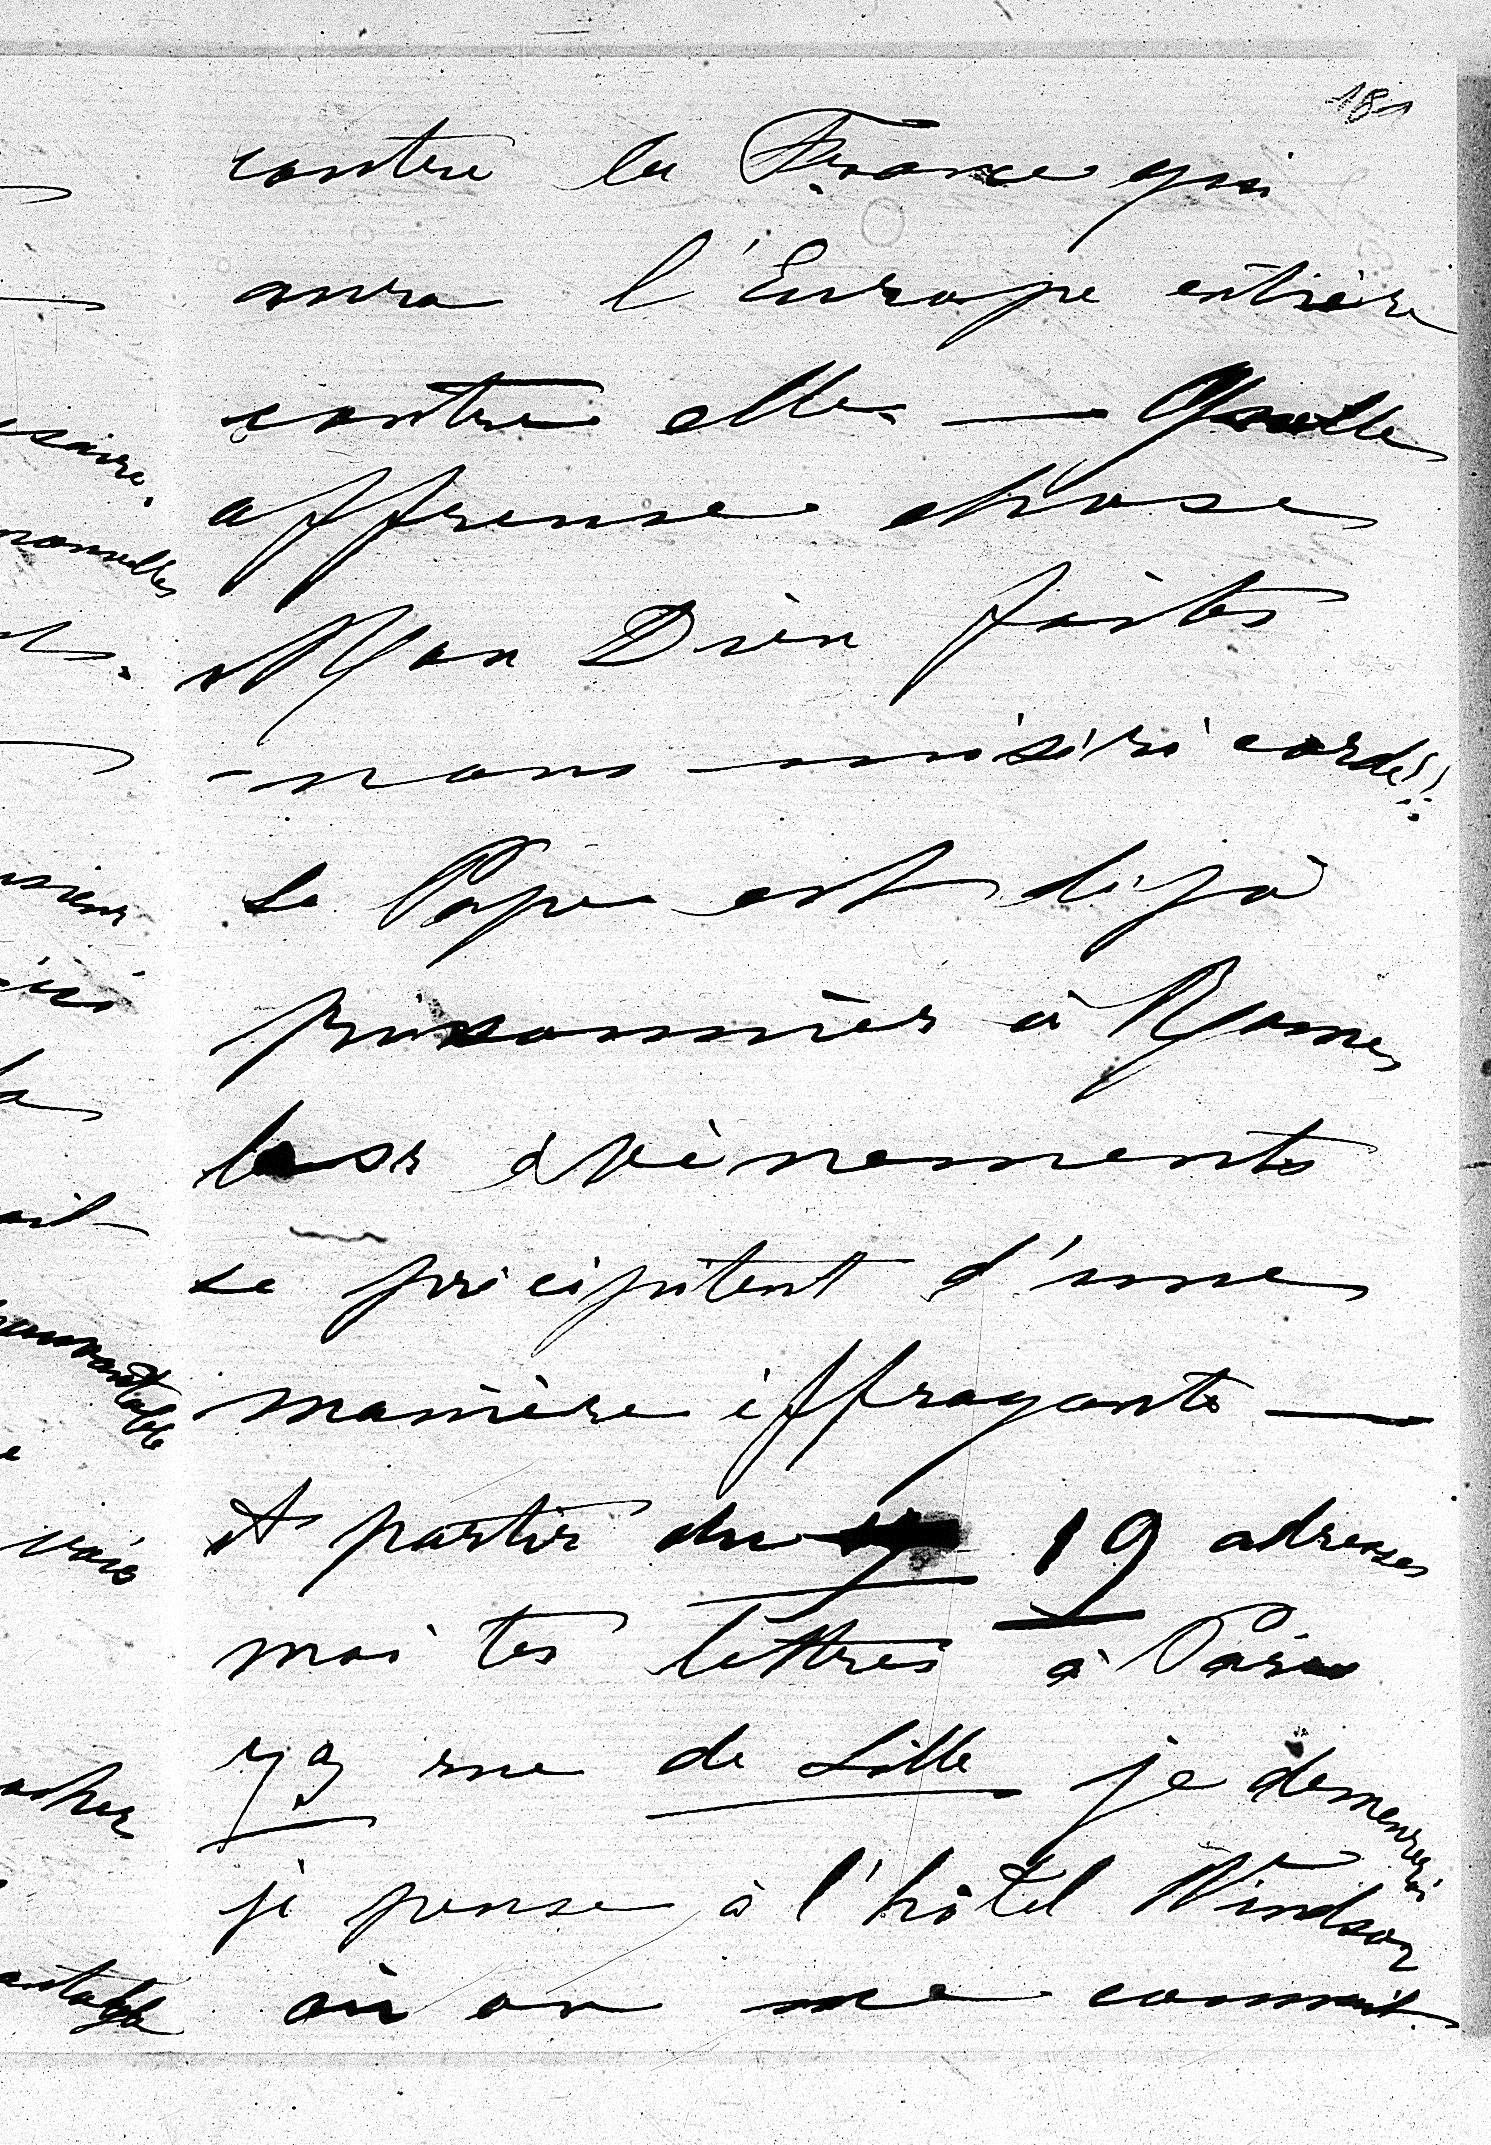 181
contre la France qui
aura l'Europe entière
contre elle. — Quelle
affreuse chose
Mon Dieu faites
nous miséricorde!!
Le Pape est déjà
prisonnier à Rome,
les évènements
se précipitent d'une
manière effrayante —
A partir du 19 adresses
moi tes lettres à Paris
79 rue de Lille je demeurerai
je pense à l'hôtel Windsor
où on me connait.